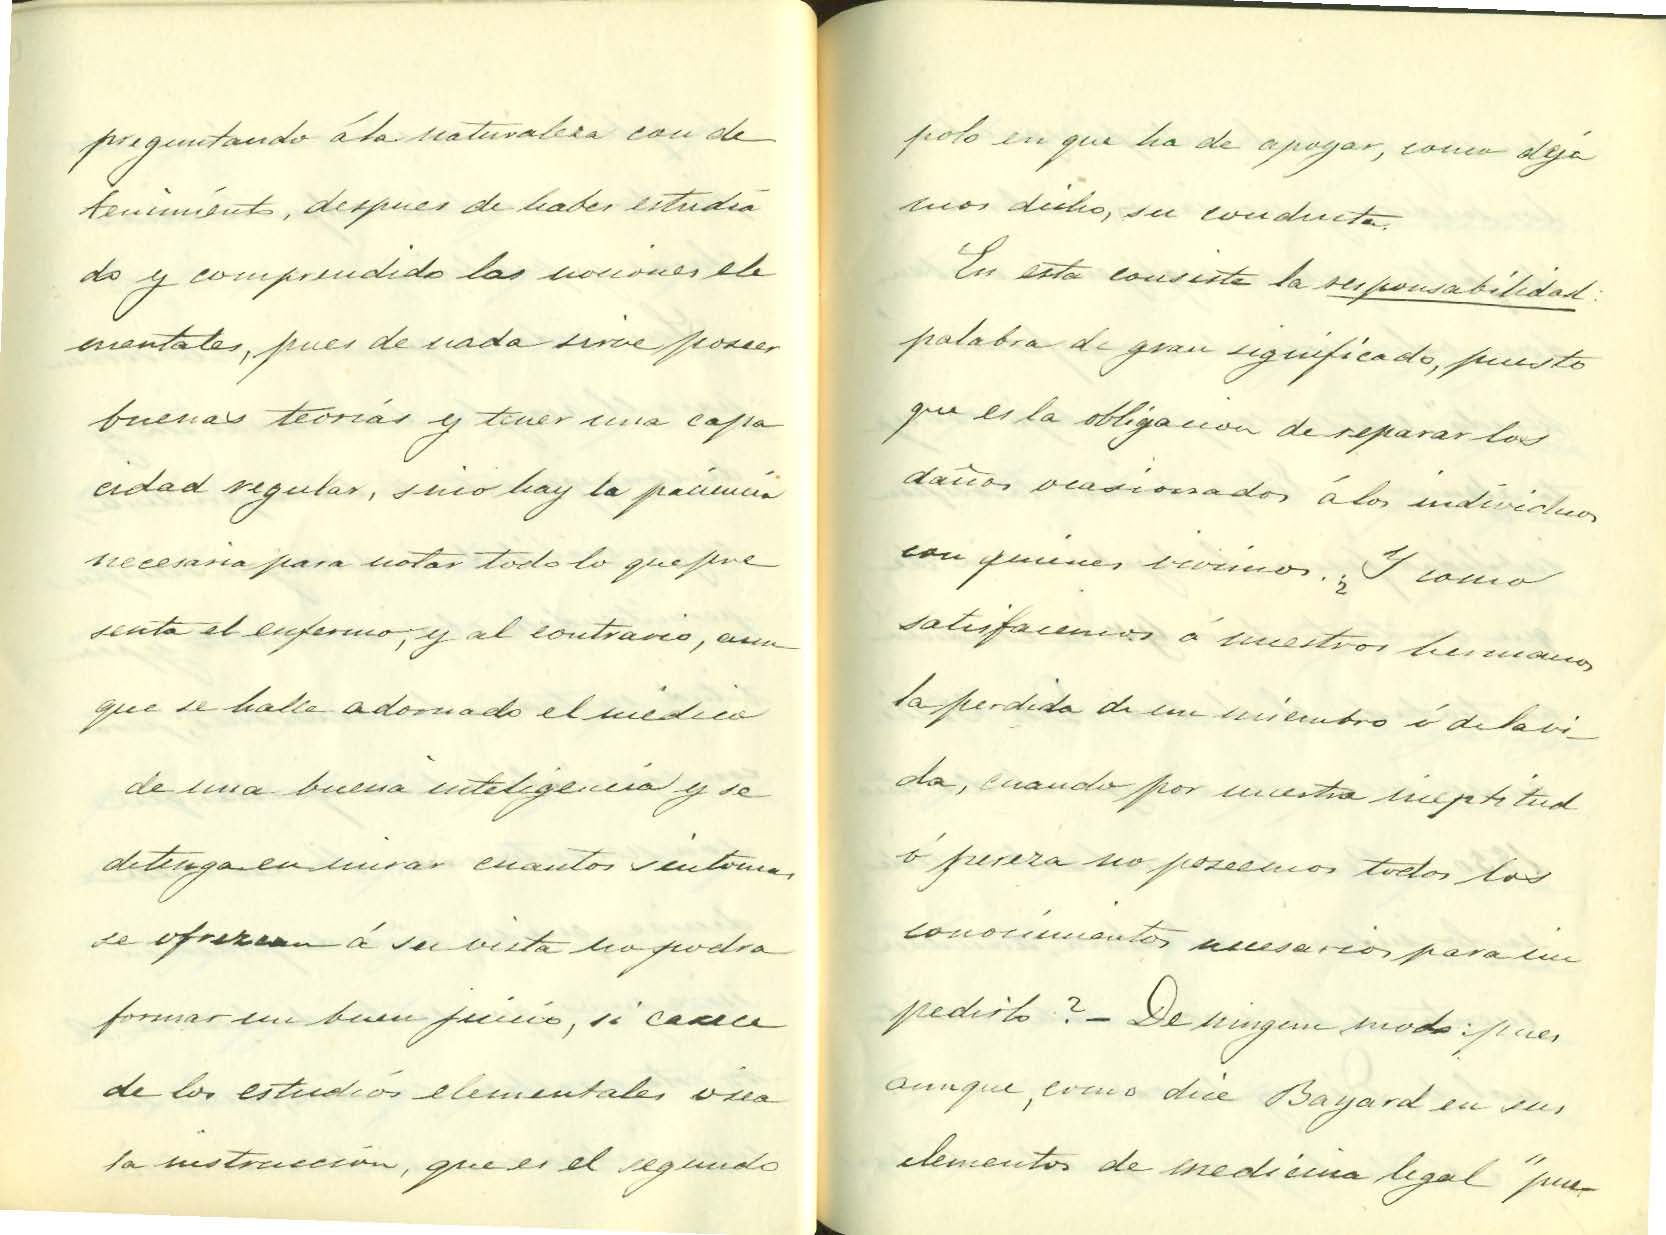 preguntando á la naturaleza con de
tenimiento, despues de haber estudia
do y comprendido las nociones ele
mentales, pues de nada sirve poseer
buenas teorías y tener una capa
cidad regular, sino hay la paciencia
necesaria para notar todo lo que pre
senta el enfermo; y al contrario, aun
que se halle adornado el médico
de una buena inteligencia y se
detenga en mirar cuantos síntomas
se ofrezcan á su vista no podra
formar un buen juicio, si carece
de los estudios elementales ó sea
la instrucción, que es el segundo
polo en que ha de apoyar, como deja
mos dicho, su conducta.
En esta consiste la responsabilidad:
palabra de gran significado, puesto
que es la obligacion de reparar los
daños ocasionados á los individuos
con quienes vivimos. ¿Y como
satisfacemos á nuestros hermanos
la perdida de un miembro ó de la vi-
da, cuando por nuestra ineptitud
ó pereza no poseemos todos los
conocimientos necesarios para im
pedirlo? — De ningun modo: pues
aunque, como dice Bayard en sus
elementos de medicina legal "pue-